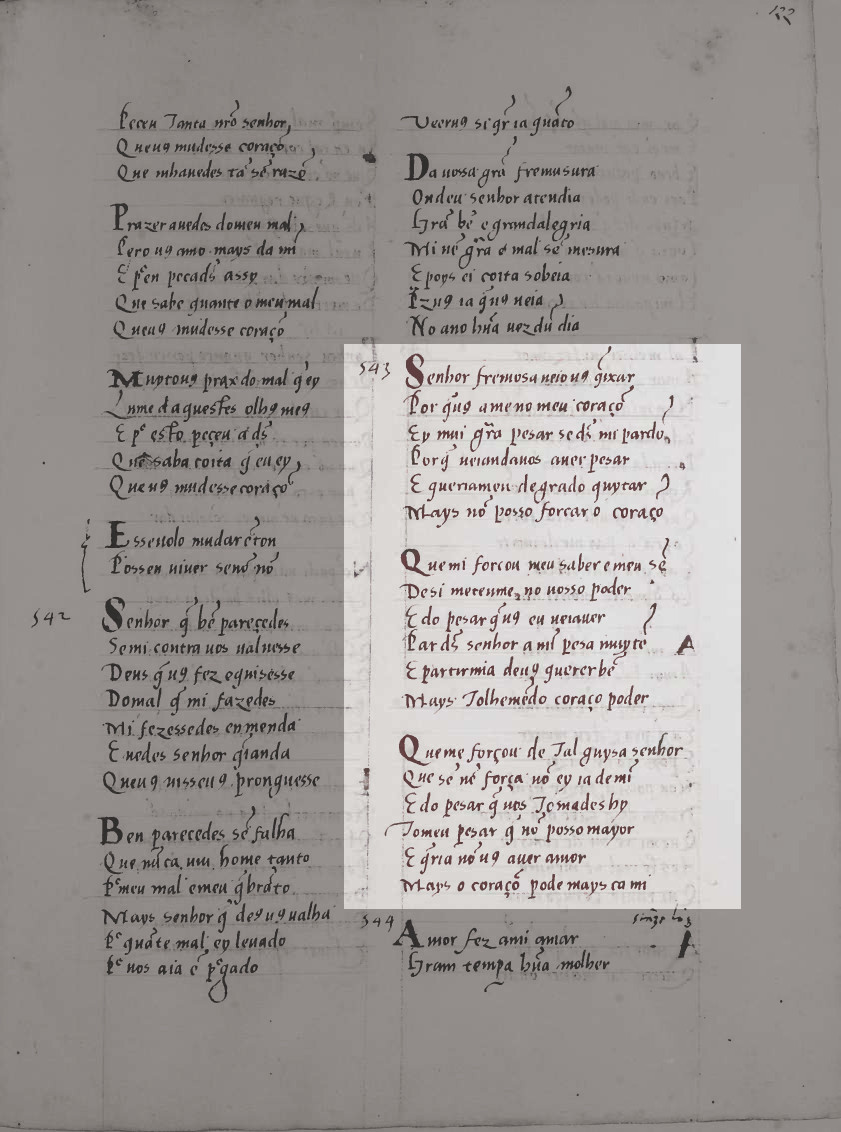 122
Peceu Tanta nr̃o senhor,
Queuꝯ mudesse coraçõ,
Que mhauedes tã sẽ razõ
Prazer auedes domeu mal,
Pero uꝯ amo mays da mĩ
E pẽn pecadꝭ assy
Que sabe quante o meu mal
Queuꝯ mudesse coraçõ
Muytouꝯ praz do mal q̃ ey
Lume daquestes olhꝯ meꝯ
E pᵉ esto peçeu a dꝭ
Que saba coita q̃ eu ey,
Queuꝯ mudesse coraçõ
Essenolo mudar cõton
Possen uiuer senõ nõ
542
Senhor q̃ bẽ pareçedes
Semi contra uos ualuesse
Deus q̃ uꝯ fez equisesse
Domal q̃ mi fazedes
Mi fezessedes enmenda
E uedes senhor q̃ianda
Queuꝯ uisseuꝯ pronguesse
Ben parecedes sẽ falha
Que nũca uiu home tanto
Pᵉ meu mal emeu q̃brãto
Mays senhor q̃ deꝯ uꝯ ualha
Pᵉ quãte mal, ey leuado
Pᵉ uos aia ẽ pᵉgado
Ueeruꝯ siq̃r ia quãto
Da uossa grã fremusura
Ondeu senhor atendia
Gram bẽ e grandalegria
Mi uẽ grã e mal sẽ mesura
E poys ei coita sobeia
Pzuꝯ ia q̃ uꝯ ueia
No ano hũa uez dũ dia
543
Senhor fremosa ueiouꝯ q̃ixar
Por q̃uꝯ ameno meu coraçõ
Ey mui grã pesar se dꝭ mi pardõ,
Por q̃ ueiandauos auer pesar
E queriameu degrado quytar
Mays nõ posso forcar o coraço
Quemi forcou meu saber e meu sẽ
Desi meteume, no uosso poder
E do pesar q̃uꝯ eu ueiauer
Par dꝭ senhor a mĩ pesa muyte
A
E partirmia deuꝯ quererbẽ
Mays Tolhemẽdo coraço poder
Queme forçou de Tal guysa senhor
Que sẽ nẽ força nõ ey ia de mĩ
E do pesar q̃ uos Tomades hy
Tomeu pesar q̃ nõ posso mayor
E q̃ria nõ uꝯ auer amor
Mays o coraçõ pode mays ca mi
544
Amor fez ami amar
Gram tempa hũa molher